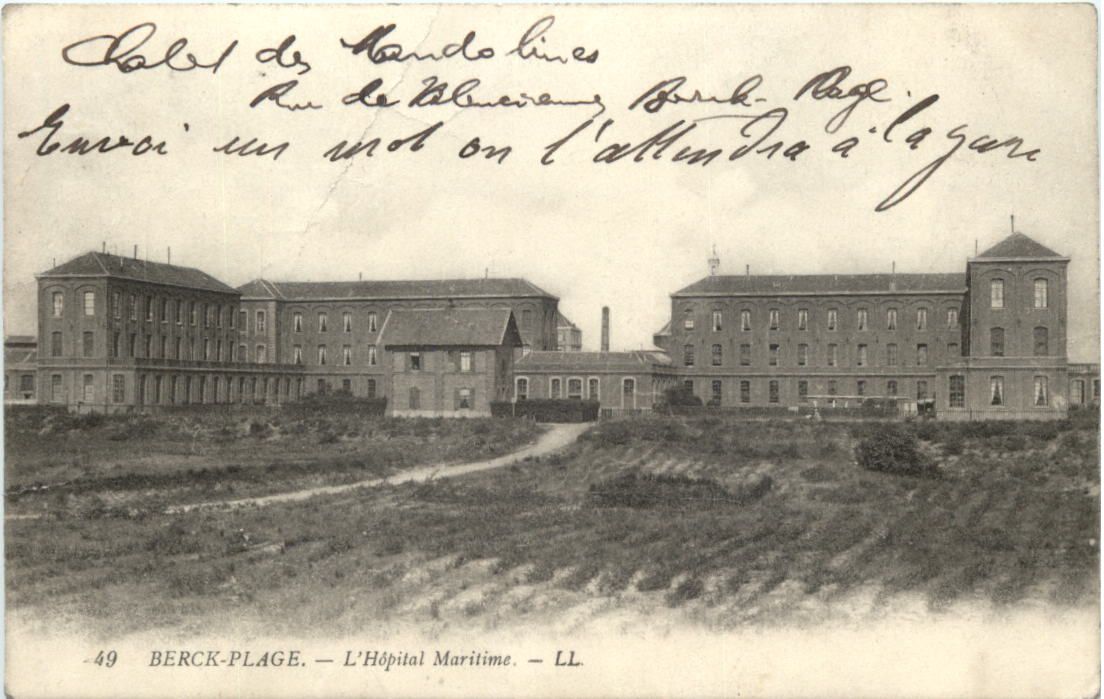 Chalet des Mandolines
Rue de Valenciennes Berck-Plage.
Envoi un mot on l'attendra à la gare
49 BERCK-PLAGE. — L'Hôpital Maritime. — LL.